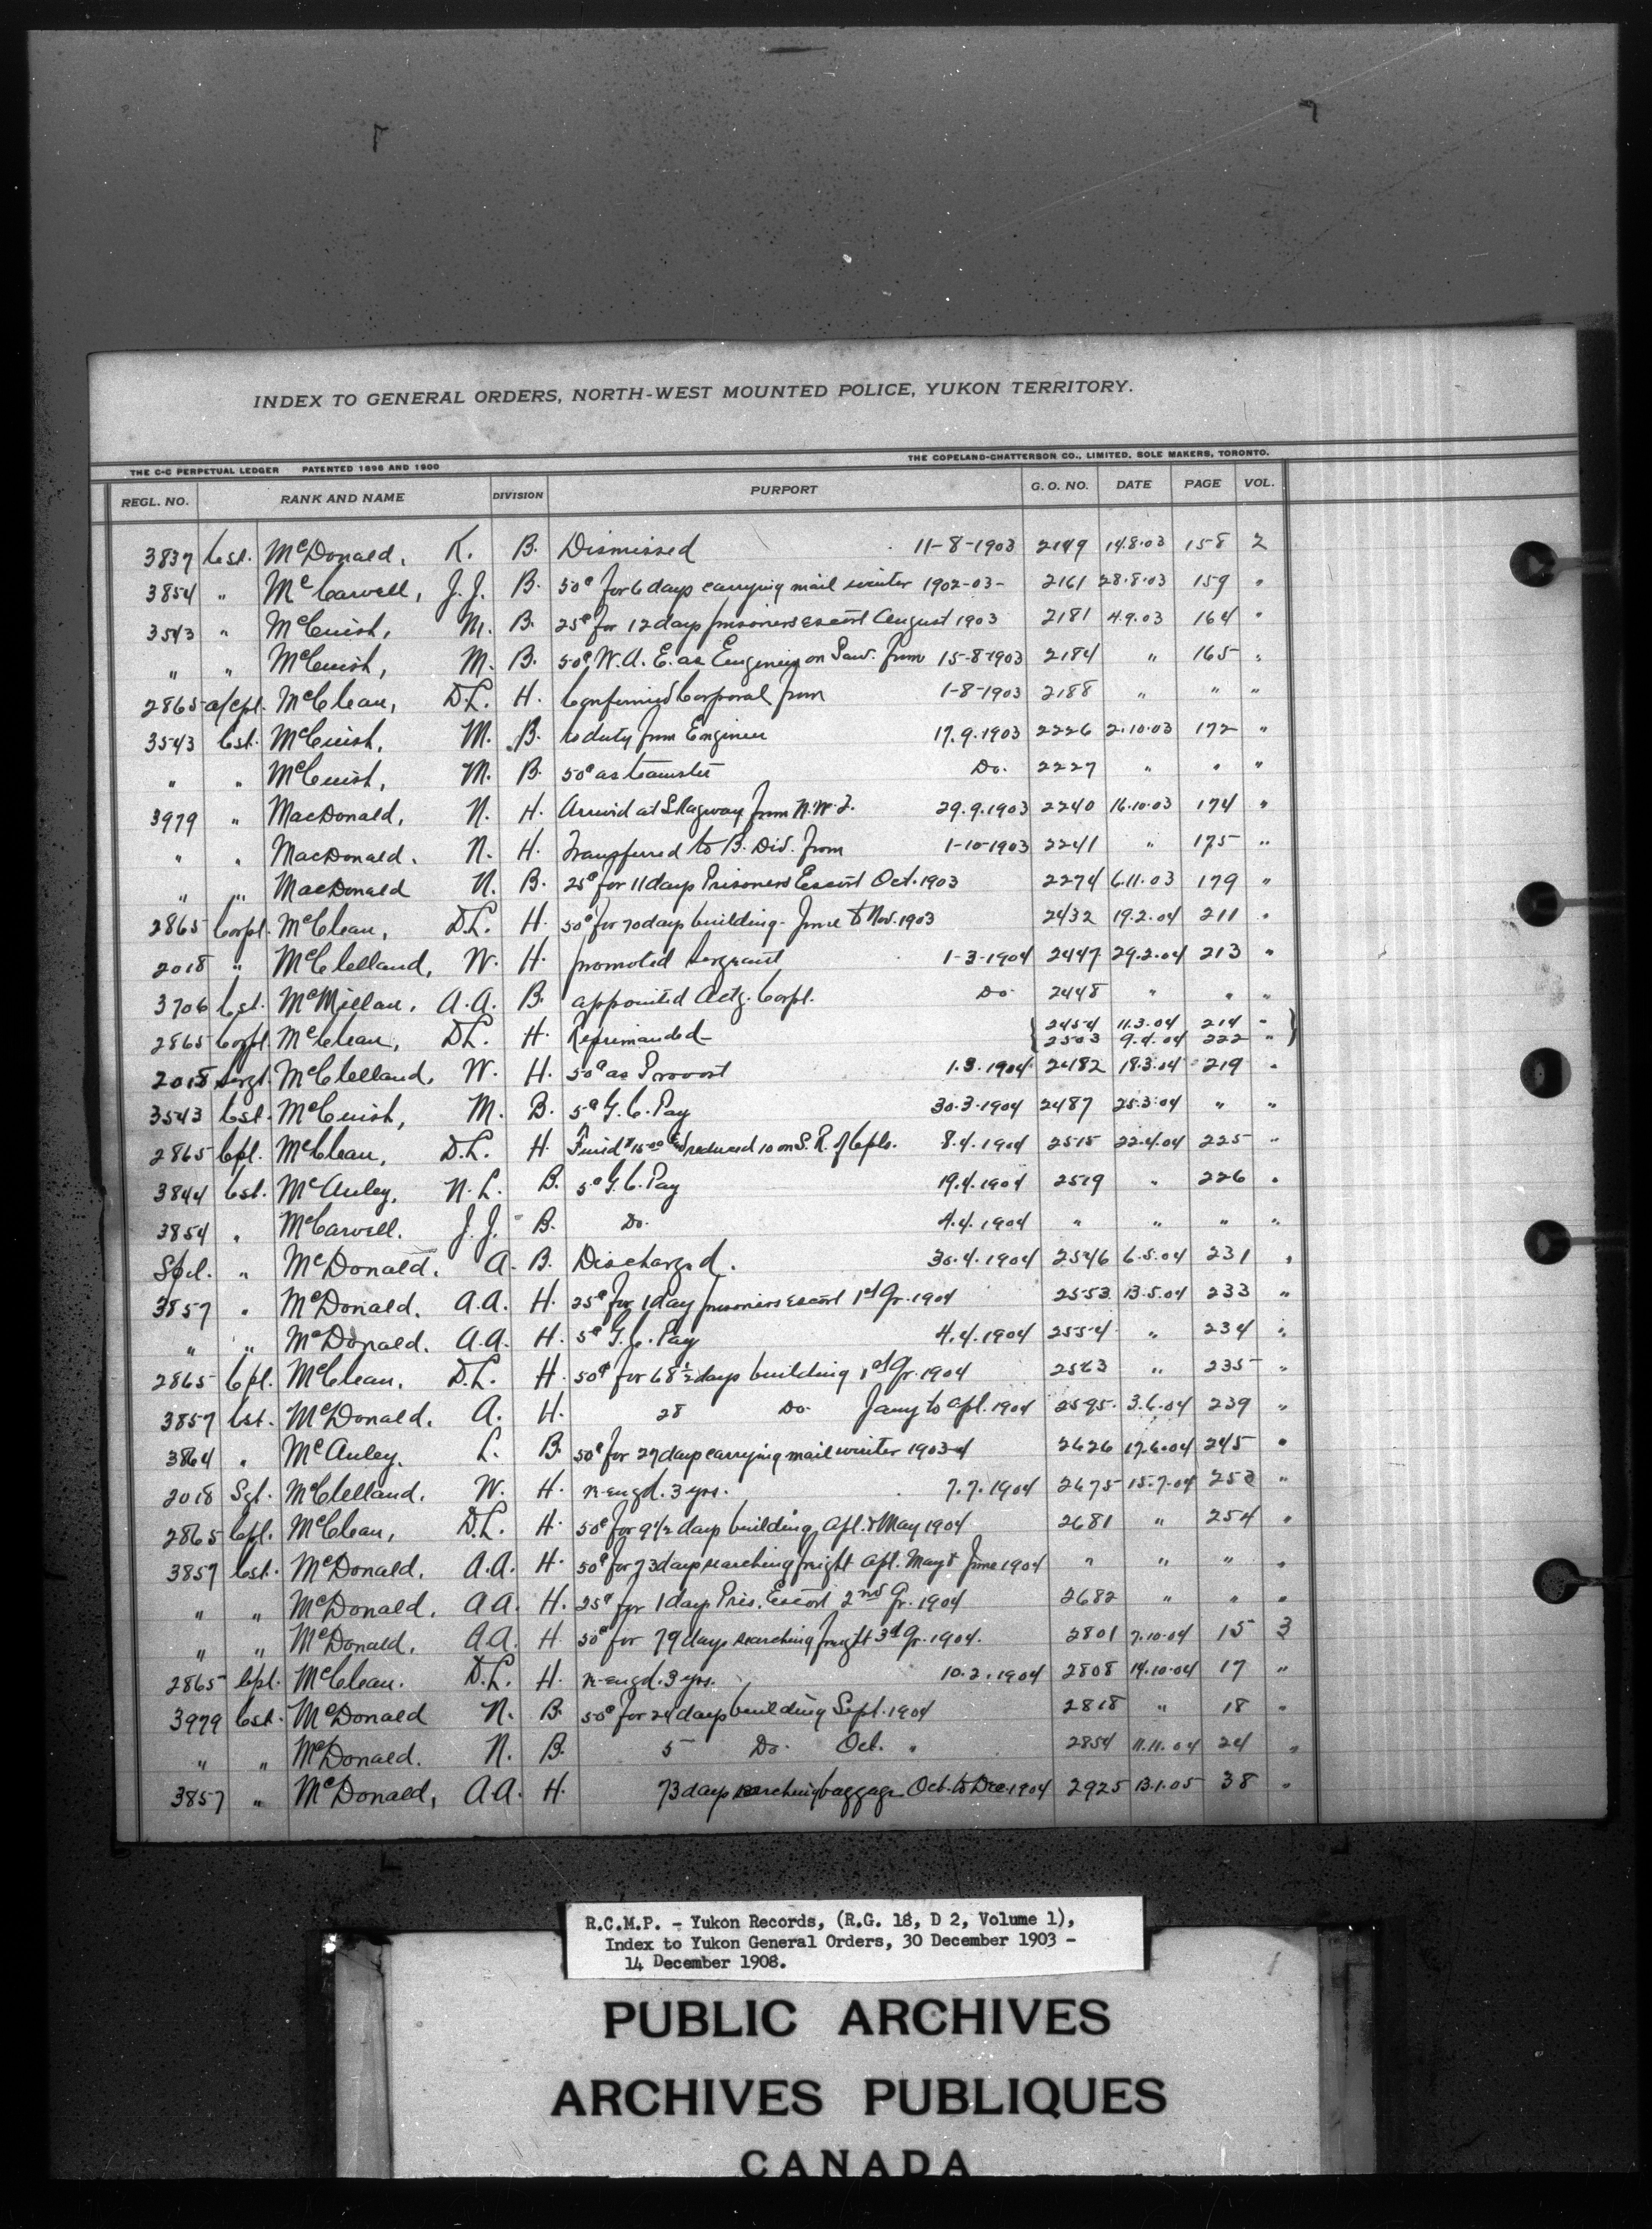 INDEX TO GENERAL ORDERS, NORTH-WEST MOUNTED POLICE, YUKON TERRITORY.
THE C-C PERPETUAL LEDGER PATENTED 1896 AND 1900 THE COPELAND-CHATTERSON CO., LIMITED, SOLE MAKERS, TORONTO.
REGL. NO. RANK AND NAME DIVISION PURPORT G. O. NO. DATE PAGE VOL.
3837 Cst. McDonald, K. B. Dismissed 11-8-1903 2149 14.8.03 158 2
3854 " McCarvell, J. J. B. 50¢ for 6 days carrying mail winter 1902-03- 2161 28.8.03 159 "
3543 " McCuish, M. B. 25¢ for 12 days prisoners escort August 1903 2181 4.9.03 164 "
" " McCuish, M. B. 50¢ W. A. E. as Engineer on Saw. from 15-8-1903 2184 " 165 "
2865 a/cpl. McClean, D.L. H. Confirmed Corporal from 1-8-1903 2188 " " "
3543 Cst. McCuish, M. B. to duty from Engineer 17.9.1903 2226 2.10.03 172 "
" " McCuish, M. B. 50¢ as teamster Do. 2227 " " "
3979 " MacDonald, N. H. Arrived at Skagway from N.W.T. 29.9.1903 2240 16.10.03 174 "
" " MacDonald. N. H. Transferred to B. Div. from 1-10-1903 2241 " 175 "
" " MacDonald N. B. 25¢ for 11 days Prisoners Escort Oct. 1903 2274 6.11.03 179 "
2865 Corpl. McClean, D.L. H. 50¢ for 70 days building - June to Nov. 1903 2432 19.2.04 211 "
2018 " McClelland, W. H. promoted Sergeant 1-3-1904 2447 29.2.04 213 "
3706 Cst. McMillan, A.A. B. appointed Actg. Corpl. Do 2448 " " "
2865 Corpl. McClean, D.L. H. Reprimanded - { 2454 11.3.04 214 "
2503 9.4.04 222 " }
2018 Sergt. McClelland, W. H. 50¢ as Provost 1.3.1904 2482 18.3.04 219 "
3543 Cst. McCuish, M. B. 5¢ G. C. Pay 30.3.1904 2487 25.3.04 " "
2865 Cpl. McClean, D.L. H. Fined $15.00 and reduced 10 on S. R. of Cpls. 8.4.1904 2515 22.4.04 225 "
3844 Cst. McAuley, N.L. B. 5¢ G. C. Pay 19.4.1904 2519 " 226 "
3854 " McCarvell. J. J. B. Do. 4.4.1904 " " " "
Spl. " McDonald. A. B. Discharged. 30.4.1904 2546 6.5.04 231 "
3857 " McDonald. A.A. H. 25¢ for 1 day prisoners escort 1st Qr. 1904 2553 13.5.04 233 "
" " McDonald. A.A. H. 5¢ G. C. Pay 4.4.1904 2554 " 234 "
2865 Cpl. McClean. D.L. H. 50¢ for 68½ days building 1st Qr. 1904 2563 " 235 "
3857 Cst. McDonald. A. H. 28 Do. Jany to Apl. 1904 2595. 3.6.04 239 "
3864 " McAuley. L. B. 50¢ for 27 days carrying mail winter 1903-4 2626 17.6.04 245 "
2018 Sgt. McClelland. W. H. re-engd. 3 yrs. 7.7.1904 2675 15.7.04 "
2865 Cpl. McClean, D.L. H. 50¢ for 9½ days building Apl. & May 1904 2681 " 254 "
3857 Cst. McDonald. A.A. H. 50¢ for 73 days searching freight Apl. May & June 1904 " " " "
" " McDonald. A.A. H. 25¢ for 1 day Pris. Escort 2nd Qr. 1904 2682 " " "
" " McDonald. A.A. H. 50¢ for 79 days searching freight 3rd Qr. 1904. 2801 7.10.04 15 3
2865 Cpl. McClean. D.L. H. re-engd. 3 yrs. 10.2.1904 2808 14.10.04 17 "
3979 Cst. McDonald N. B. 50¢ for 24 days building Sept. 1904 2818 " 18 "
" " McDonald. N. B. 5 Do. Oct. " 2854 11.11.04 24 "
3857 " McDonald, A.A. H. 73 days searching baggage Oct. to Dec. 1904 2925 13.1.05 38 "
R.C.M.P. - Yukon Records, (R.G. 18, D 2, Volume 1),
Index to Yukon General Orders, 30 December 1903 -
14 December 1908.
PUBLIC ARCHIVES
ARCHIVES PUBLIQUES
CANADA